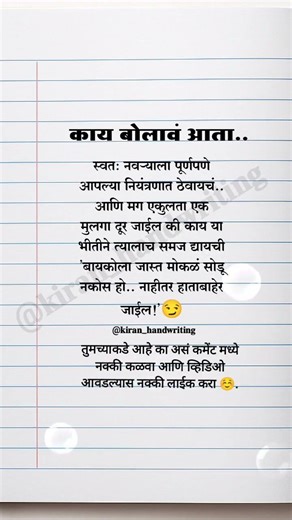 काय बोलावं आता..
स्वतः नवऱ्याला पूर्णपणे
आपल्या नियंत्रणात ठेवायचं..
आणि मग एकुलता एक
मुलगा दूर जाईल की काय या
भीतीने त्यालाच समज द्यायची
'बायकोला जास्त मोकळं सोडू
नकोस हो.. नाहीतर हाताबाहेर
जाईल!'😏
@kiran_handwriting
तुमच्याकडे आहे का असं कमेंट मध्ये
नक्की कळवा आणि व्हिडिओ
आवडल्यास नक्की लाईक करा ☺️.
@kiran_handwriting